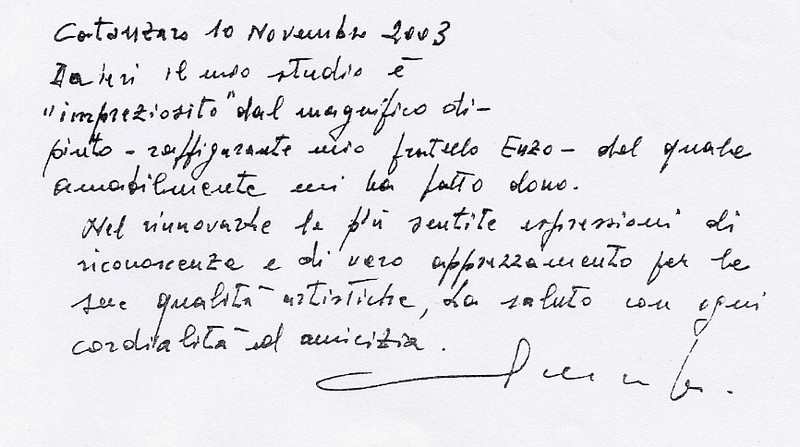 Catanzaro 10 Novembre 2003
Da ieri il mio studio è
"impreziosito" dal magnifico di-
pinto - raffigurante mio fratello Enzo - del quale
amabilmente mi ha fatto dono.
Nel rinnovarle le più sentite espressioni di
riconoscenza e di vero apprezzamento per le
sue qualità artistiche, La saluto con ogni
cordialità ed amicizia.